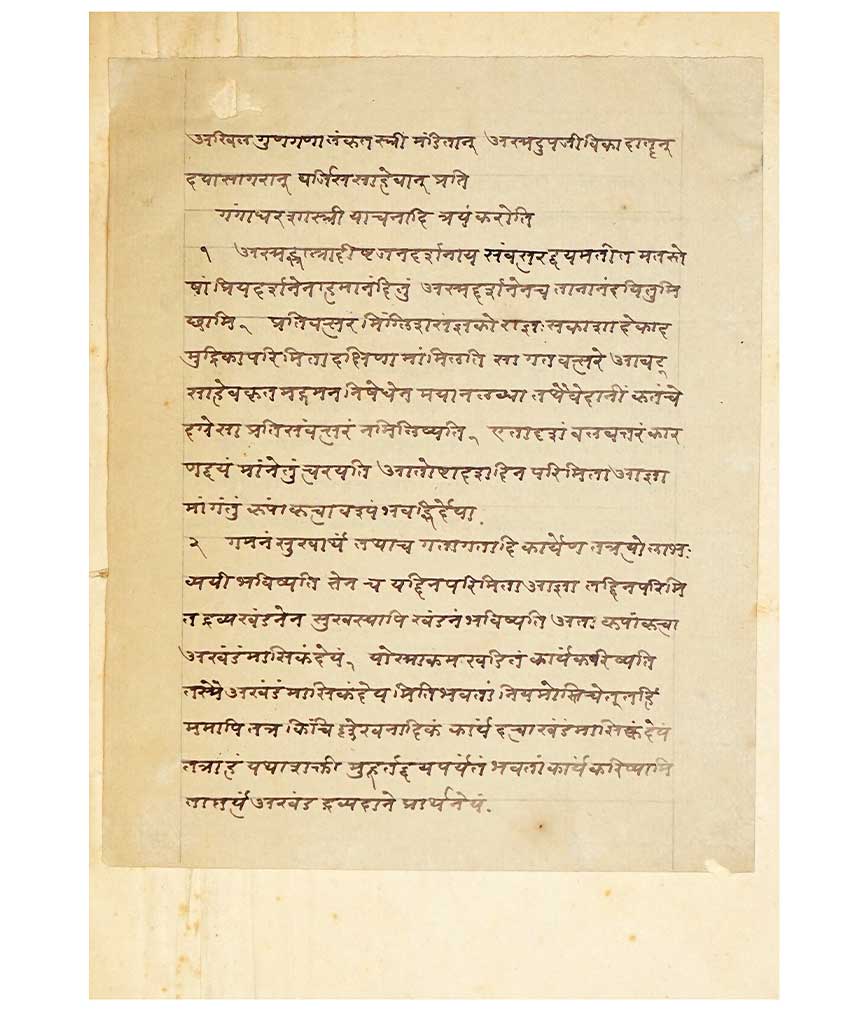 अखिल गुणगणालंकृतस्त्री मंडितान् अस्मदुपजीविकादातॄन्
दयासागरान् बर्जिससाहेबान् प्रति
गंगाधरशास्त्री याचनादि त्रयं करोति
१ जनदर्शनाय संवत्सरद्वयमतीत मतस्ते
षां प्रियदर्शनेनाहमानंदितुं अस्मद्दर्शनेनच तानानंदयितुमि
छामि, प्रतिवत्सर मिंग्लिशसंज्ञको राज्ञः सकाशादेकाद
मुद्रिकापरिमिता दक्षिणा मांमिलति सा गतवत्सरे
साहेबकृत मद्गमननिषेधेन मयानलब्धा तथैवेदानीं कृतंचे
त्प्रतिसंवत्सरं नमिलिष्यति, एतादृशं बलवत्तरं कार
णद्वयं मांनेतुं त्वरयति दिन परिमिता आज्ञा
मांगंतुं कृपांकृत्वावश्यं भवद्भिर्देया.
२ गमनंसुखार्थं तथाच गतागतादि कार्येण तत्रत्योलाभः
व्ययीभविष्यति तेन च यद्दिनपरिमिता आज्ञा तद्दिनपरिमि
त द्रव्यखंडनेन सुखस्यापि खंडनंभविष्यति अतः कृपांकृत्वा
अखंडंमासिकंदेयं, योस्माकमखंडितं कार्यंकरिष्यति
तस्मै अखंडंमासिकंदेयमितिभवतां नियमोस्तिचेत्तर्हि
ममापि तत्र किंचिल्लेखनादिकं कार्यं दत्वाखंडंमासिकंदेयं
तत्राहं यथाशक्ती मुहूर्तद्वयपर्यंतं भवतांकार्यंकरिष्यामि
अखंड द्रव्यदाने प्रार्थनेयं.